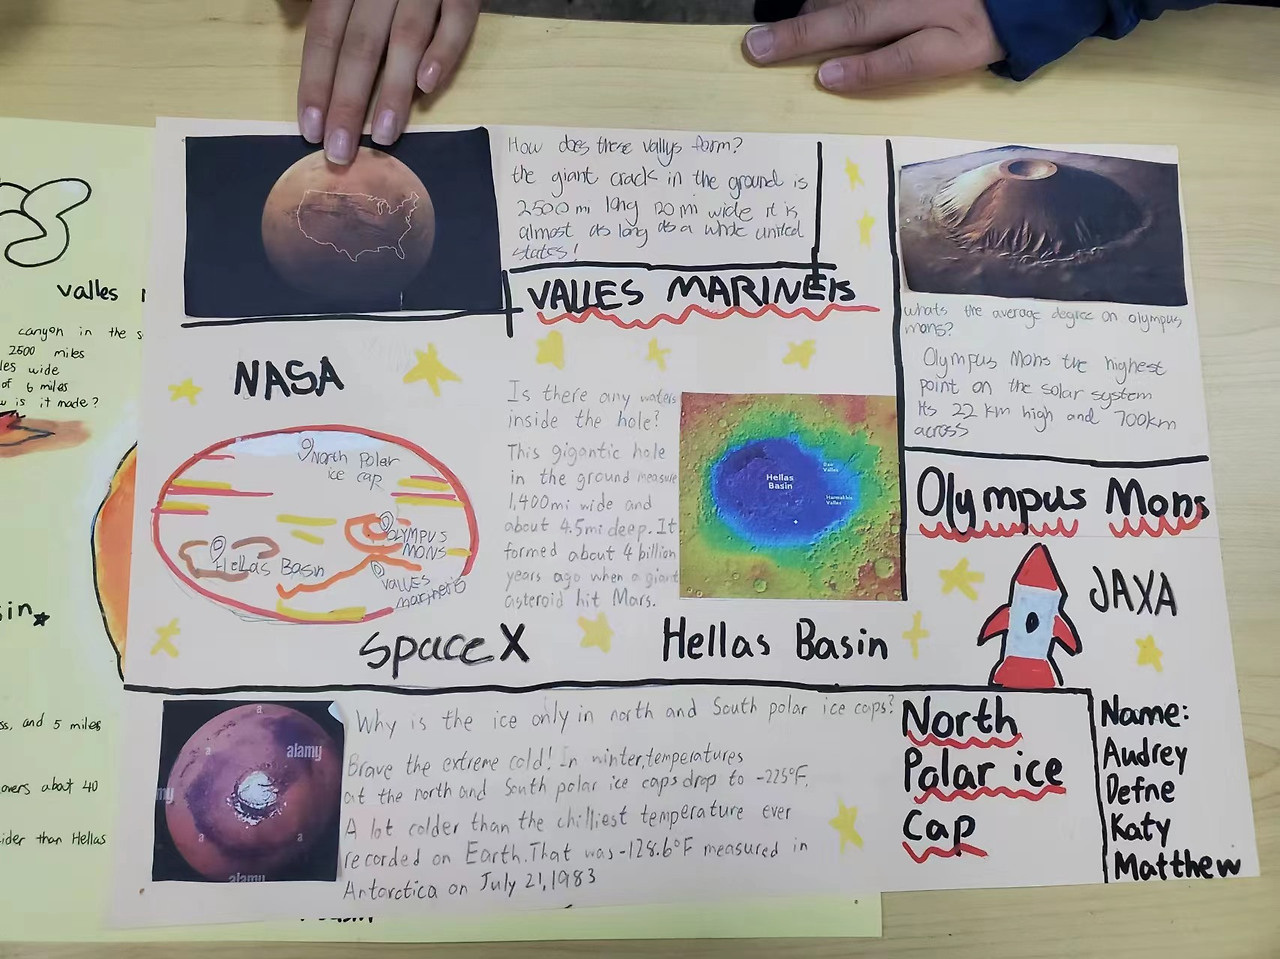 How does these vallys form?
the giant crack in the ground is
2500 mi long 120 mi wide it is
almost as long as a whole united
states!
VALLES MARINEIS
whats the average degree on olympus
mons?
Olympus Mons the highest
point on the solar system
Its 22 km high and 700km
across
Olympus Mons
NASA
North Polar
ice cap
OLYMPUS
MONS
Hellas Basin
VALLES
marineris
Is there any waters
inside the hole?
This gigantic hole
in the ground measure
1,400mi wide and
about 4.5mi deep. It
formed about 4 billion
years ago when a giant
asteroid hit Mars.
Hellas
Basin
Dao
Valles
Harmakhis
Valles
Hellas Basin
SpaceX
JAXA
a
alamy
a
a
a
alamy
Why is the ice only in north and South polar ice caps?
Brave the extreme cold! In winter,temperatures
at the north and South polar ice caps drop to -225°F.
A lot colder than the chilliest temperature ever
recorded on Earth.That was -128.6°F measured in
Antarctica on July 21,1983
North
Polar ice
cap
Name:
Audrey
Defne
Katy
Matthew
valles
canyon in the s
2500 miles
les wide
of 6 miles
w is it made?
sin
ss, and 5 miles
overs about 40
ider than Hellas